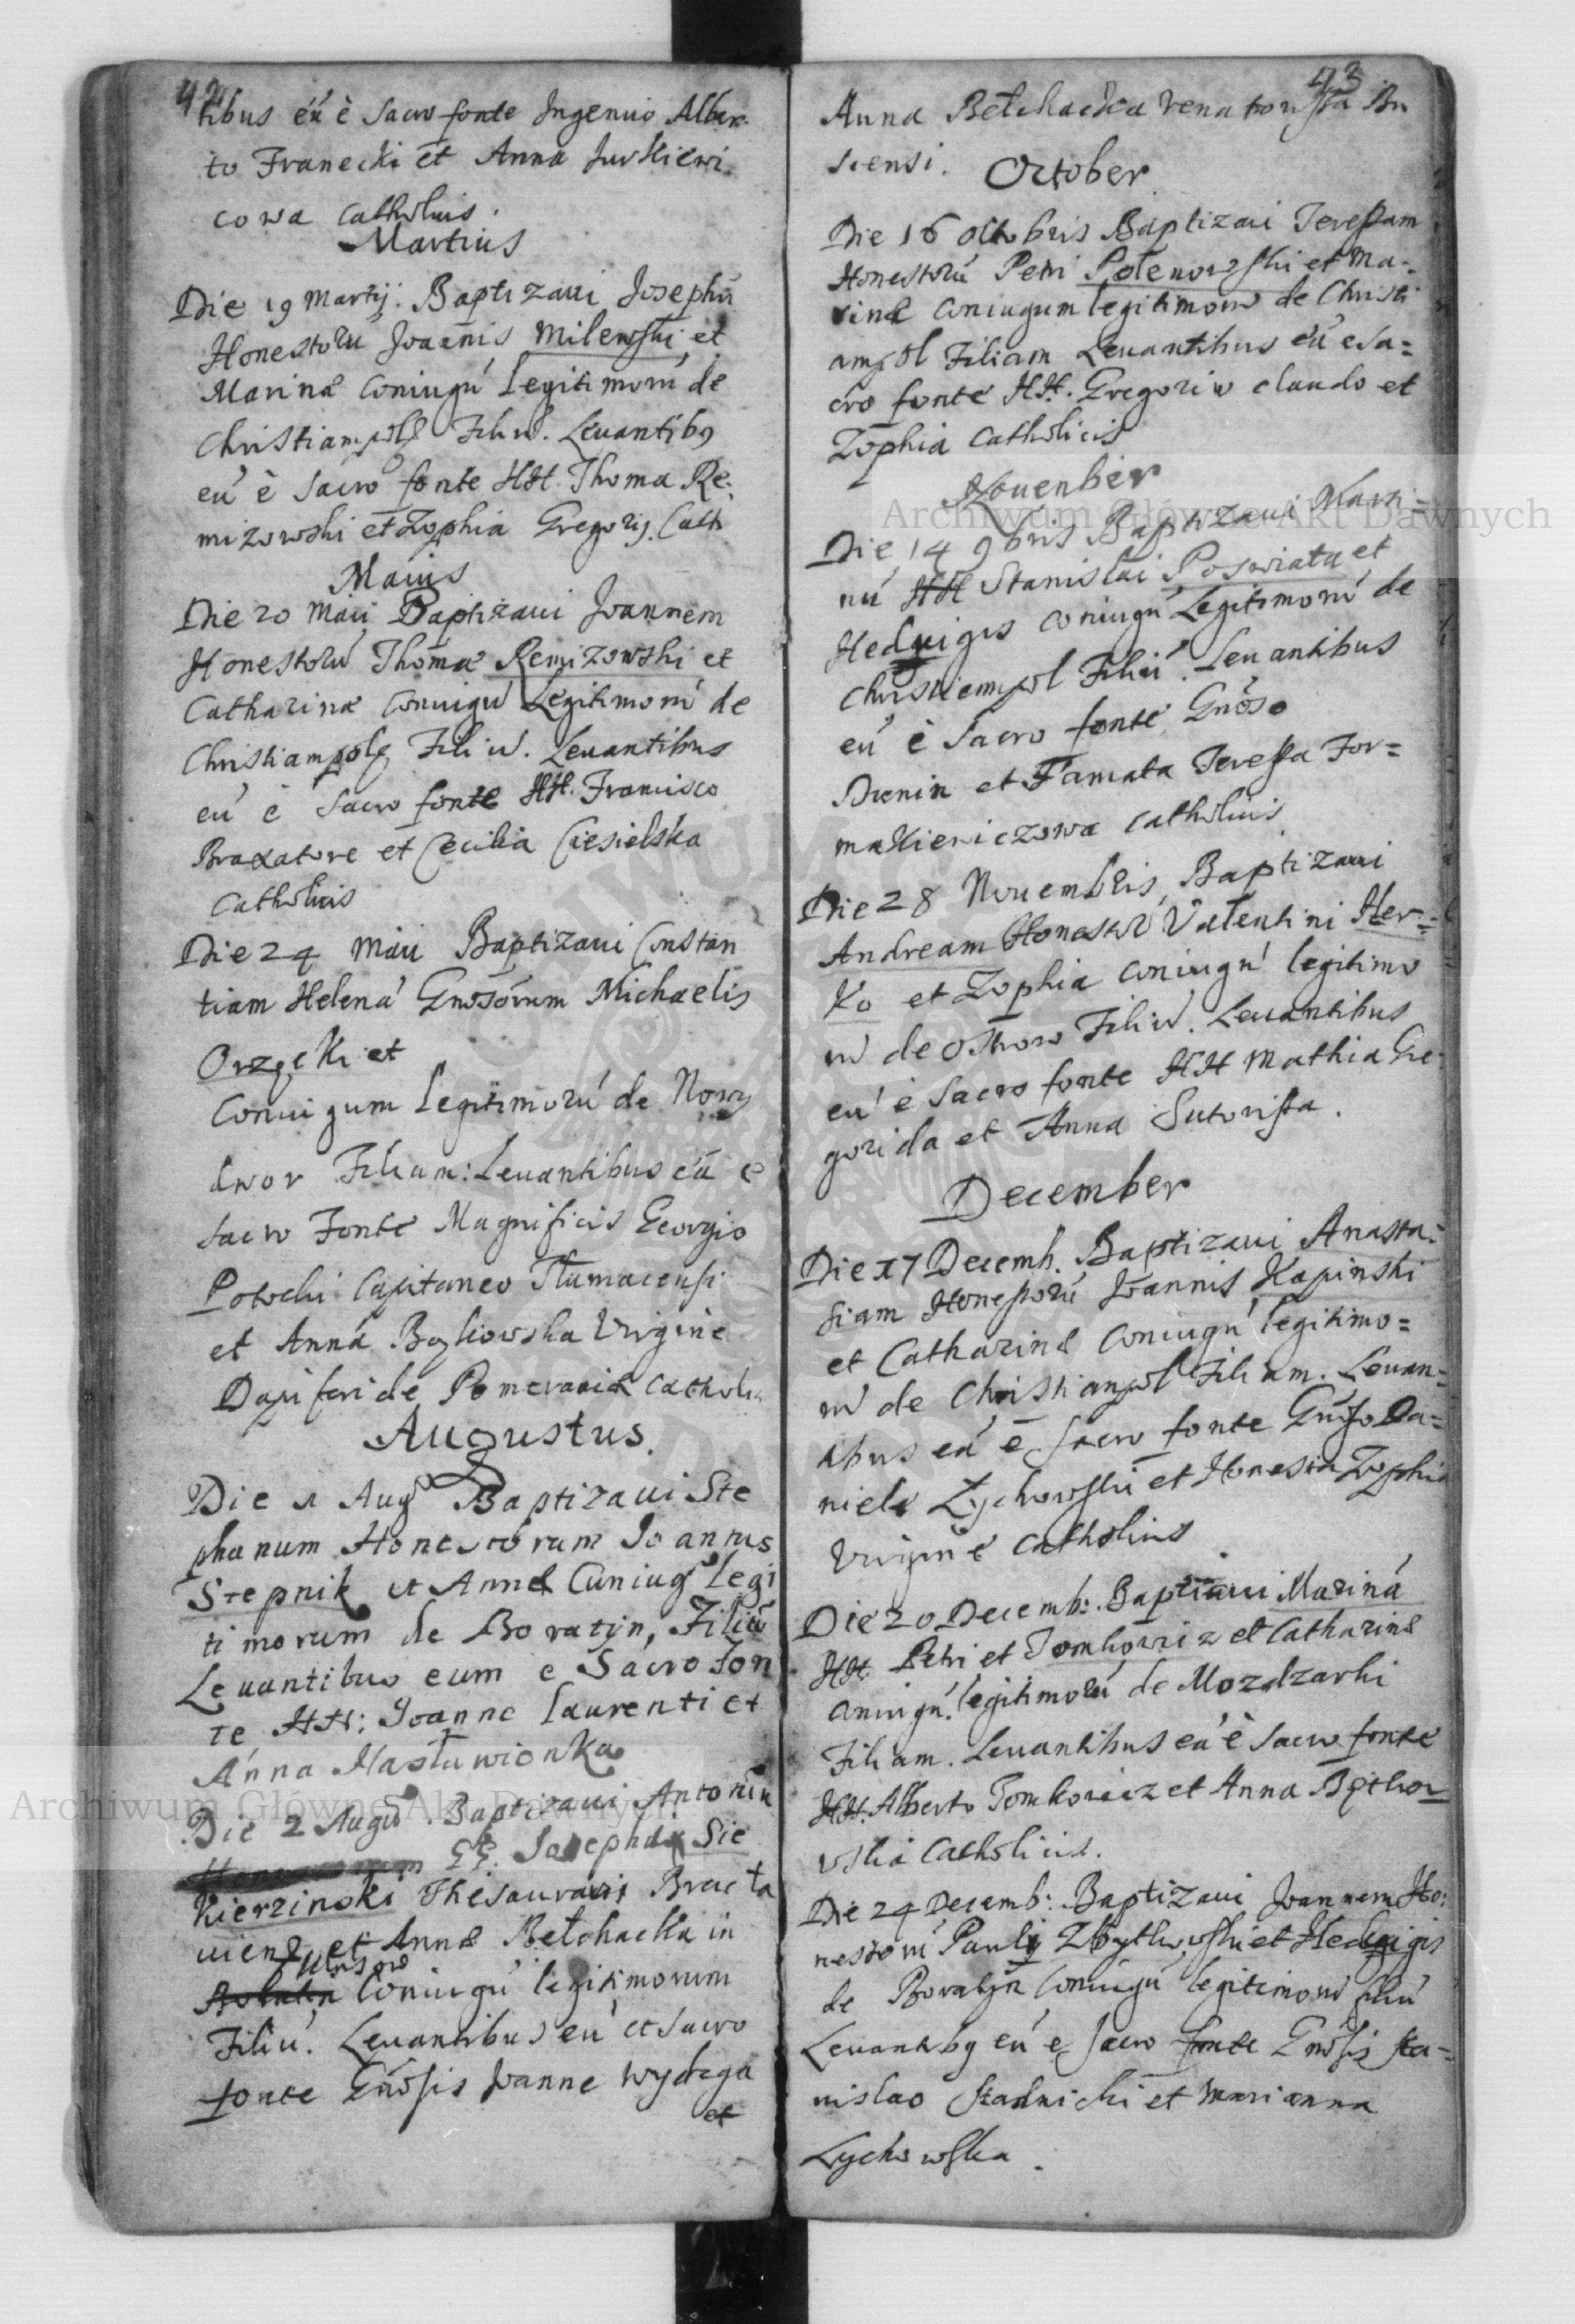 42
tibus eú è Sacro fonte Ingenuo Alber
to Franecki et Anna Jurkiewi
cowa Catholicis.
Martius
Die 19 Martij. Baptizaui Josephú
Honestorú Joannis Milewski et
Marinæ Coniugú Legitimorú de
Christiampole Filiú. Leuantibg
eú è Sacro fonte HH. Thoma Re
mizowski et Zophia Gregorij. Cath
Maius
Die 20 Maii Baptizaui Joannem
Honestorú Thomæ Remizowski et
Catharinæ Coniugú Legitimorú de
Christiampole Filiú. Leuantibus
eú è Sacro fonte HH. Francisco
Braxatore et Cecilia Ciesielska
Catholicis
Die 24 Maii Baptizaui Constan
tiam Helenā Gnosorum Michaelis
Orzęcki et
Coniugum Legitimorú de Nowy
dwor Filiam: Leuantibus eā e
Sacro Fonte Magnificis Georgio
Potocki Capitaneo Tłumacensi
et Anná Virgine
Dapiferi de Pomerania Catholi
Augustus.
Die 1 Augs Baptizaui Ste
phanum Honestorum Joannis
Stepnik et Annæ Coniug Legi
timorum de Boratyn, Filiú
Leuantibus eum e Sacro Fon
te HH: Joanne Laurenti et
Anna Nasturwionka
Die 2 Augs. Baptizaui Antoniú
GG. Josephi Sie
kierzinski Thesaurarij Bracła
uiens et Annæ Bełchacka in
Coniugú legitimorum
Filiú. Leuantibus eú et Sacro
fonte Gnosis Joanne Wydzga
et
43
Anna Bełchacka Venatorissa Bu
scensi.
October
Die 16 Octobris Baptizaui Teressam
Honestorú Petri Połenowski et Ma=
rinæ Coniugum legitimorú de Christi
ampol Filiam Leuantibus eú e Sa=
cro fonte HH. Gregorio claudo et
Zophia Catholicis
Nouenber
Die 14 9bris Baptizaui Marti=
nú HH Stanislai Poswiata et
Heduigis Coniugú Legitimorú de
Christiempol Filiú. Leuantibus
eú è Sacro fonte Gnoso
Dunin et Famata Teressa For=
makiewiczowa Catholicis
Die 28 Nouembris Baptizaui
Andream Honestor Valentini Her=
ko et Zophia Coniugú legitimo
rú de Ostrow Filiú. Leuantibus
eú è Sacro fonte HH Mathia Gre
gorida et Anna Sutorissa.
December
Die 17 Decemb. Baptizaui Anasta=
siam Honestorú Joannis Kapinski
et Catharinæ Coniugú legitimo=
rú de Christianpol Filiam. Leuan=
tibus eá è Sacro fonte Gnoso Da=
niele Łychowski et Honesta Zophia
Virgine Catholicis
Die 20 Decemb: Baptizaui Mariná
HH. Petri et Tomkowicz et Catharinæ
Coniugú legitimorú de Mozdzarki
Filiam. Leuantibus eá è Sacro fonte
HH. Alberto Tomkowicz et Anna
wska Catholicis.
Die 24 Decemb: Baptizaui Joannem Ho:
nestorú Pauli Zbytkowski et Hedwigis
de Boratyn Coniugú legitimorú filiú
Leuantibg eú e Sacro fonte Gnosis Sta=
nislao Stadnicki et Marianna
Lychowska.
Archiwum Główne Akt Dawnych
Archiwum Główne Akt Dawnych